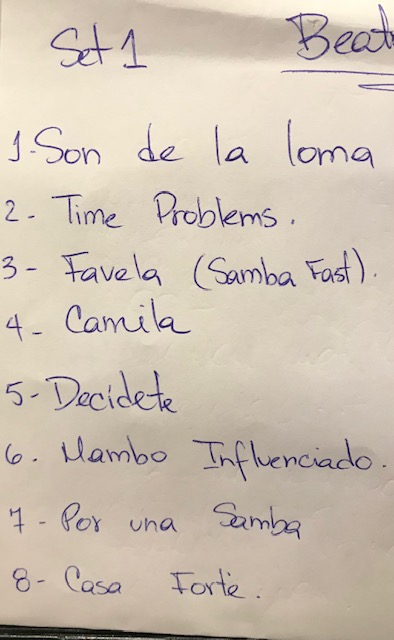 Set 1 Beat
1-Son de la loma
2- Time Problems.
3- Favela (Samba Fast).
4- Camila
5- Decídete
6. Mambo Influenciado.
7- Por una Samba
8- Casa Forte.